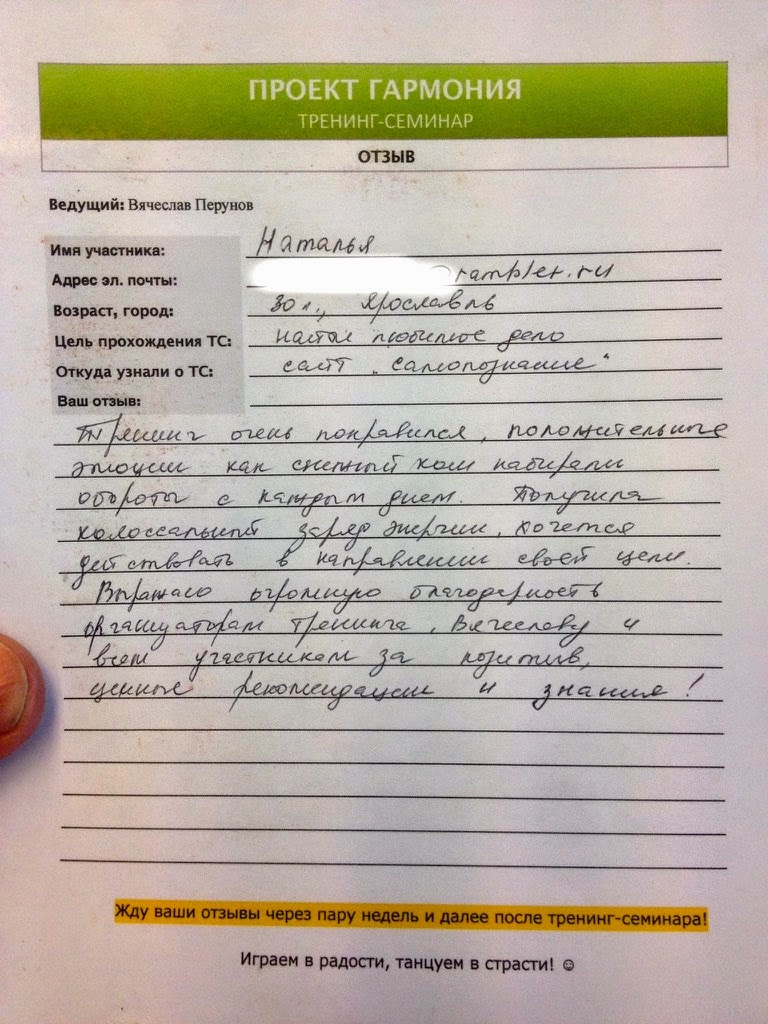 ПРОЕКТ ГАРМОНИЯ
ТРЕНИНГ-СЕМИНАР
ОТЗЫВ
Ведущий: Вячеслав Перунов
Имя участника: Наталья
Адрес эл. почты: @rambler.ru
Возраст, город: 30 л., Ярославль
Цель прохождения ТС: найти любимое дело
Откуда узнали о ТС: сайт „Самопознание"
Ваш отзыв:
Тренинг очень понравился, положительные
эмоции как снежный ком набирали
обороты с каждым днем. Получила
колоссальный заряд энергии, хочется
действовать в направлении своей цели.
Выражаю огромную благодарность
организаторам тренинга, Вячеславу и
всем участникам за позитив,
ценные рекомендации и знания!
Жду ваши отзывы через пару недель и далее после тренинг-семинара!
Играем в радости, танцуем в страсти! ☺